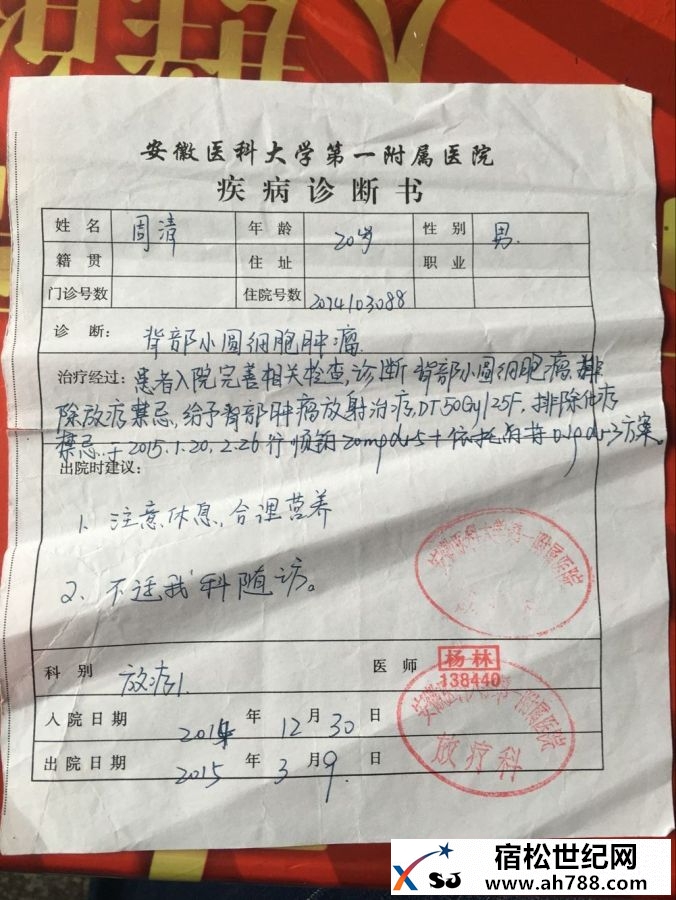 安徽医科大学第一附属医院
疾病诊断书
姓名 周清 年龄 20岁 性别 男.
籍贯 住址 职业
门诊号数 住院号数 2074103088
诊断: 背部小圆细胞肿瘤
治疗经过: 患者入院完善相关检查,诊断背部小圆细胞瘤,排
除放疗禁忌,给予背部肿瘤放射治疗,DT50Gy/25F,排除化疗
禁忌,于2015.1.20,2.26行顺铂20mg d1-5+依托泊苷0.1g d1-3方案。
出院时建议:
1. 注意休息,合理营养
2. 不适我科随访。
安徽医科大学第一附属医院
科别 放疗1. 医师 杨林
138440
入院日期 2014年12月30日
出院日期 2015年3月9日
安徽医科大学第一附属医院
放疗科
XSJ
宿松世纪网
www.ah788.com